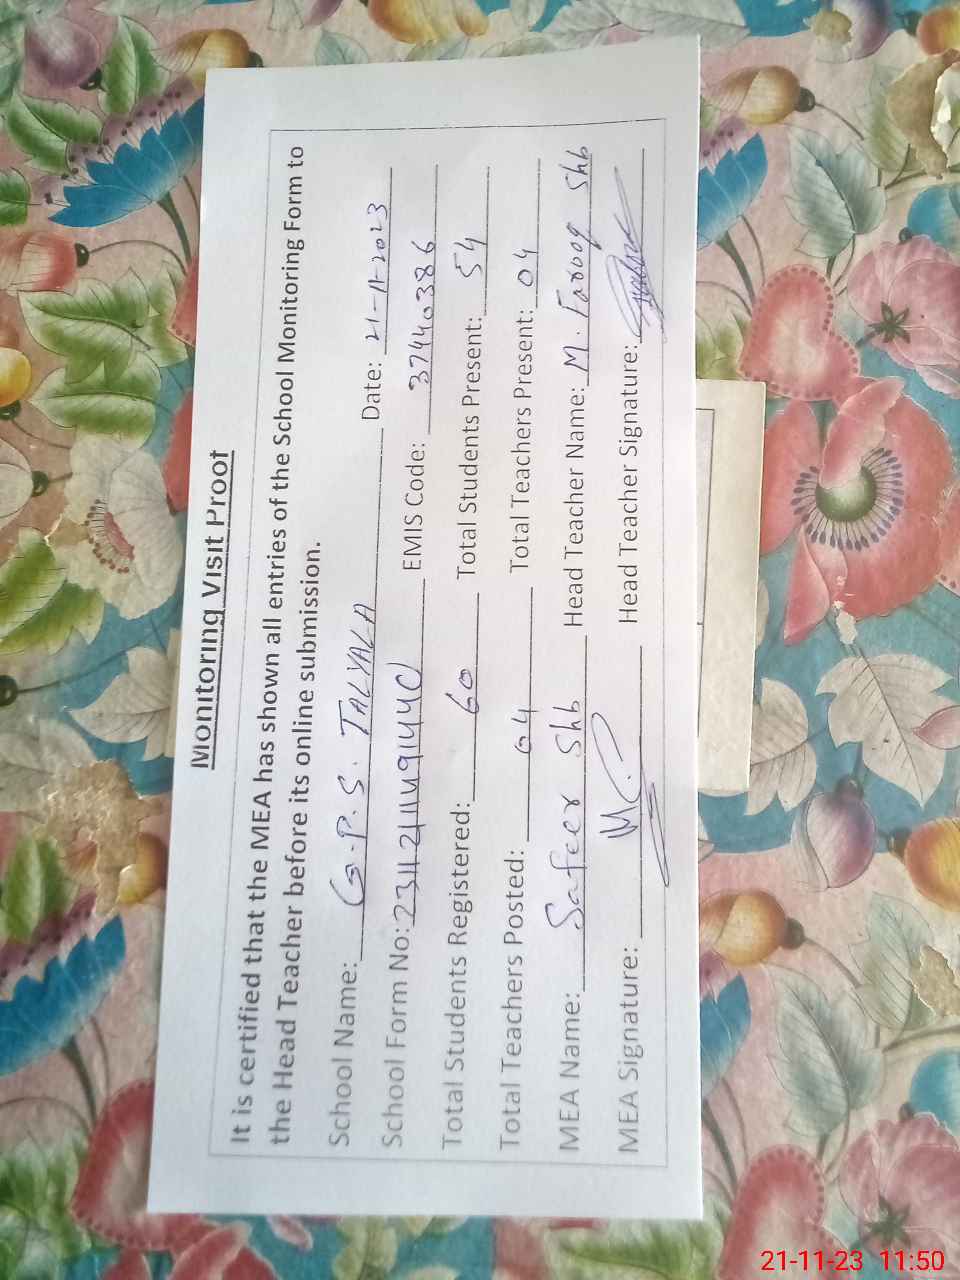 Monitoring Visit Proof
It is certified that the MEA has shown all entries of the School Monitoring Form to
the Head Teacher before its online submission.
School Name: G.P.S. TALYALA Date: 21-11-2023
School Form No: EMIS Code: 37440386
Total Students Registered: 60 Total Students Present: 54
Total Teachers Posted: 04 Total Teachers Present: 04
MEA Name: Safeer Shb Head Teacher Name: M. Farooq Shb
MEA Signature: Head Teacher Signature:
21-11-23 11:50